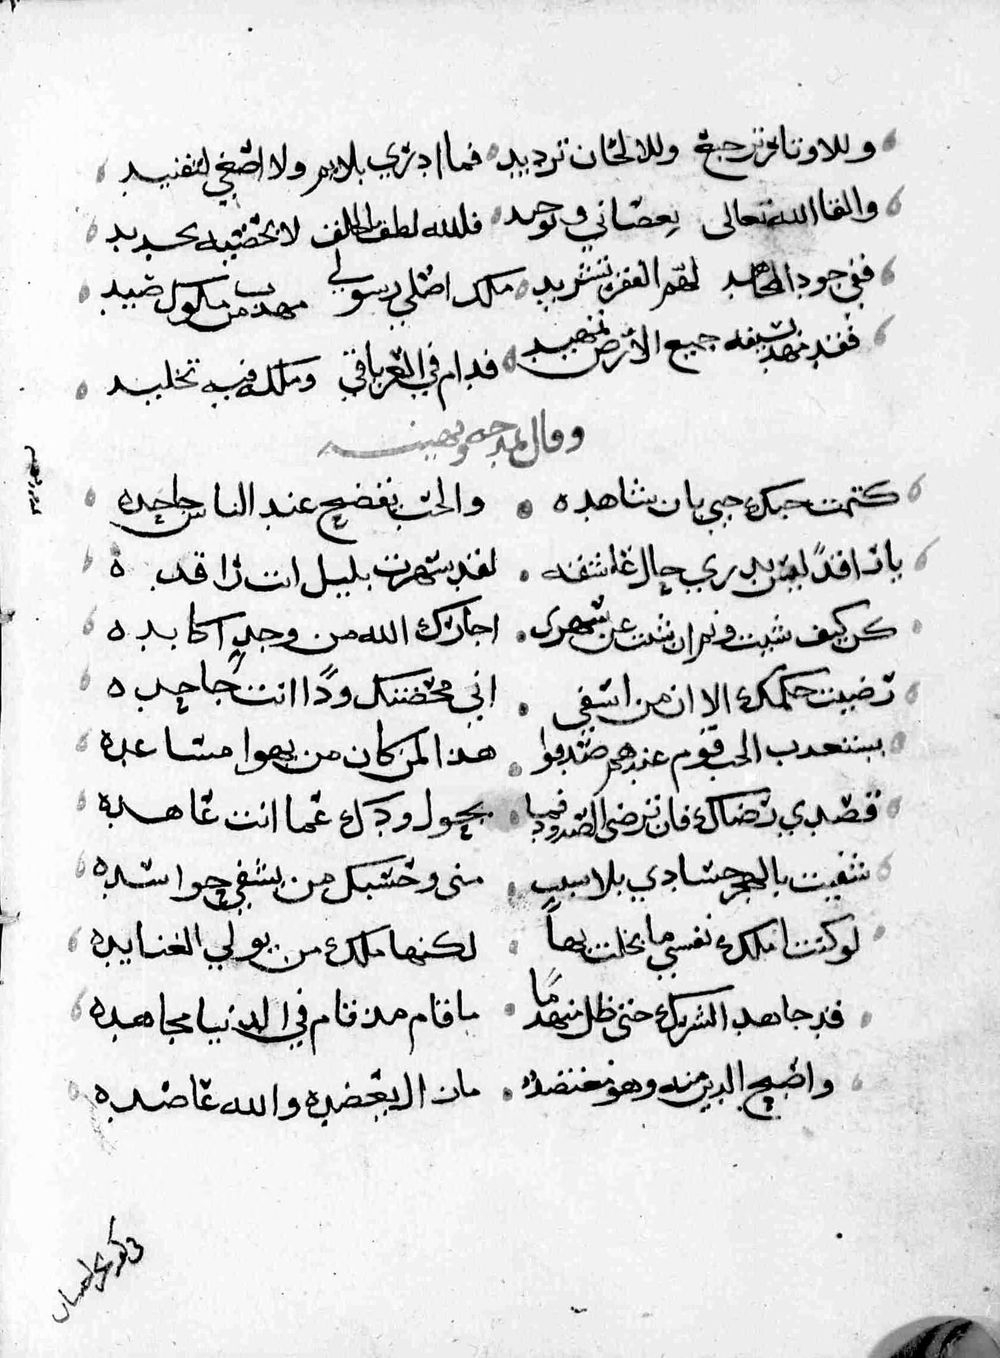 وللاوتار ترجيع وللالحان ترديد فما ادري بلايم ولا اصغي لتفنيد
والقا الله تعالى بعصياني وتوحيد فلله لطف لا يحصيه تحديد
ففي جود لهم الفقر تشريد ملك اصلي رسولي مهذب من ملوك صيد
فقد مهد بسيفه جميع الأرض تمهيد فدام في العز باقي وملكه فيه تخليد
وقال يمدحه ويهنيه
كتمت حبك وحبي بان شاهده والحب يفضح عند الناس جاحده
يا راقدًا ليس يدري حال عاشقه لقد سهرت بليل انت راقده
كن كيف شيت ونم ان شت عن سهري اجارك الله من وجدٍ اكابده
رضيت حكمك الا ان من اسفي اني محضتك ودًا انت جاحده
يستعذب الحب قوم عندهم صدقوا هذا لمن كان من يهوا مساعده
قصدي رضاك فان ترضى الصدود فما يحول ودك عما انت عاهده
شفيت بالهجر حسادي بلا سببٍ مني وحسبك من يشفي حواسده
لو كنت املك نفسي ما بخلت بها لكنها ملك من يولي الغنا يده
قد جاهد الشرك حتى ظل منهدمًا ما قام مذ قام في الدنيا مجاهده
واصبح الدين منه وهو معتضد بان العضده والله عاضده